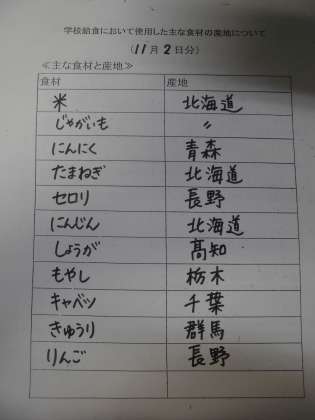 学校給食において使用した主な食材の産地について
(11月2日分)
≪主な食材と産地≫
食材 産地
米 北海道
じゃがいも 〃
にんにく 青森
たまねぎ 北海道
セロリ 長野
にんじん 北海道
しょうが 高知
もやし 栃木
キャベツ 千葉
きゅうり 群馬
りんご 長野